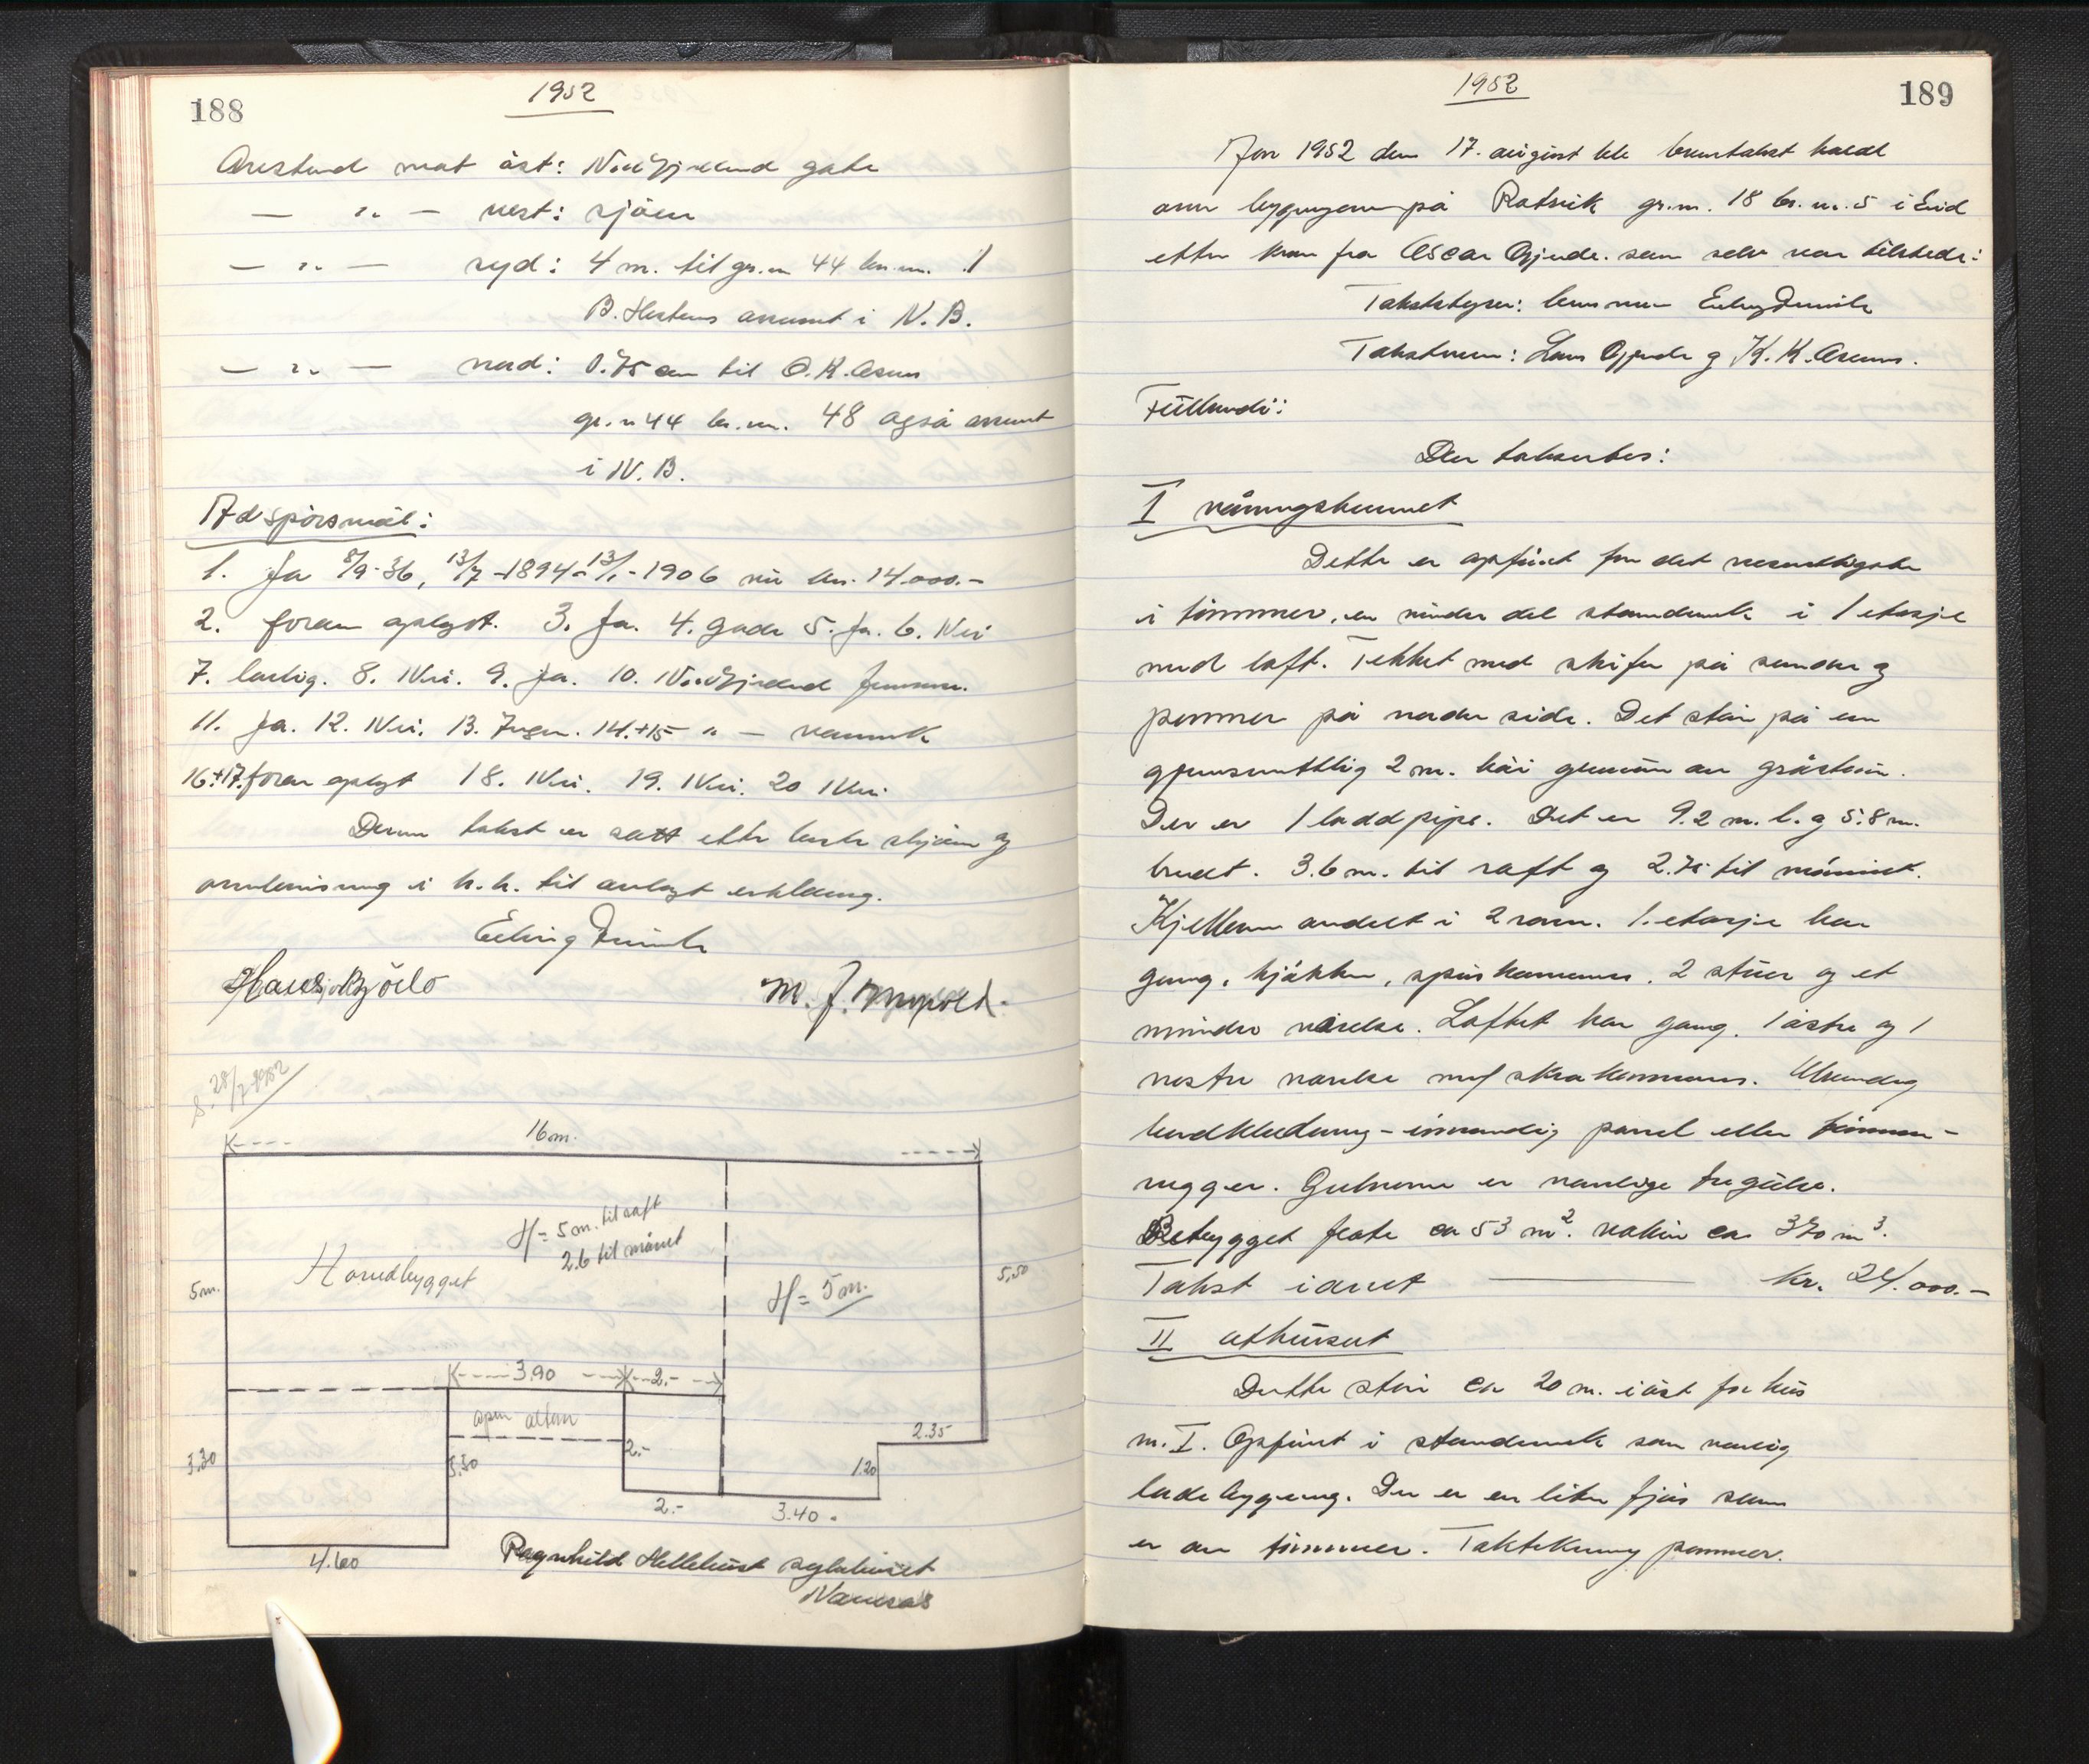 188
1952
Avstand mot øst: Nordfjordeid gate
— " — vest: sjøen
— " — syd: 4 m. til gr.n 44 br.nr. 1
B. Hestenes assurert i N.B.
— " — nord: 0.75 cm til O.K. Aasen
gr.n 44 br.nr. 48 også assurert
i N.B.
Ad spørsmål:
1. Ja 8/9-36, 13/7-1894-13/1-1906 nu kr. 14.000.-
2. foran oplyst. 3. Ja. 4. gode 5. Ja. 6. Nei
7. lovlig. 8. Nei. 9. Ja. 10. Nordfjordeid
11. Ja. 12. Nei. 13. Ingen. 14.+15 " —
16+17. foran oplyst 18. Nei. 19. Nei. 20 Nei
Denne takst er satt etter beste skjøn og
overbevisning i h.h. til avlagt erklæring.
Erling
M. J.
S. 28/7-1952
16 m.
H= 5 m. til raft
2.6 til mønet
Hovedbygget
H= 5 m.
5 m.
5.50
3.90
2.-
open altan
2.-
3.30
3.30
2.35
1.20
2.-
3.40
4.60
Ragnhild
189
1952
Aar 1952 den 17. august ble branntakst holdt
over bygningene på Rotevik gr.nr. 18 br.nr. 5 i Eid
etter krav fra Oscar Gjerde som selv var tilstede:
Takststyrer: lensmann Erling
Takstmenn: Lars Gjerde og K. K.
Fullmedi:
Der takseertes:
I våningshuset
Dette er opført for det vesentligste
i tømmer, en mindre del standverk i 1 etasje
med loft. Tekket med skifer på søndre og
panner på nordre side. Det står på en
gjennomsnittlig 2 m. høi grunnmur av gråstein.
Der er 1 ladd pipe. Det er 9.2 m. l. og 5.8 m.
bredt. 3.6 m. til raft og 2.75 til mønet.
Kjelleren avdelt i 2 rom. 1. etasje har
gang, kjøkken, spiskammers, 2 stuer og et
mindre værelse. Loftet har gang, 1 østre og 1
vestre værelse m/ skrakammers. Utvendig
bordkledning - innvendig panel eller tømmer-
vegger. Gulvene er vanlige tregulve.
Bebygget flate ca 53 m². volum ca 370 m³.
Takst idaret ——— kr. 24.000.-
II uthuset
Dette står ca 20 m. i øst for hus
nr. I. Opført i standverk som vanlig
ladebygning. Der er en liten fjøs som
er av tømmer. Taktekning panner.